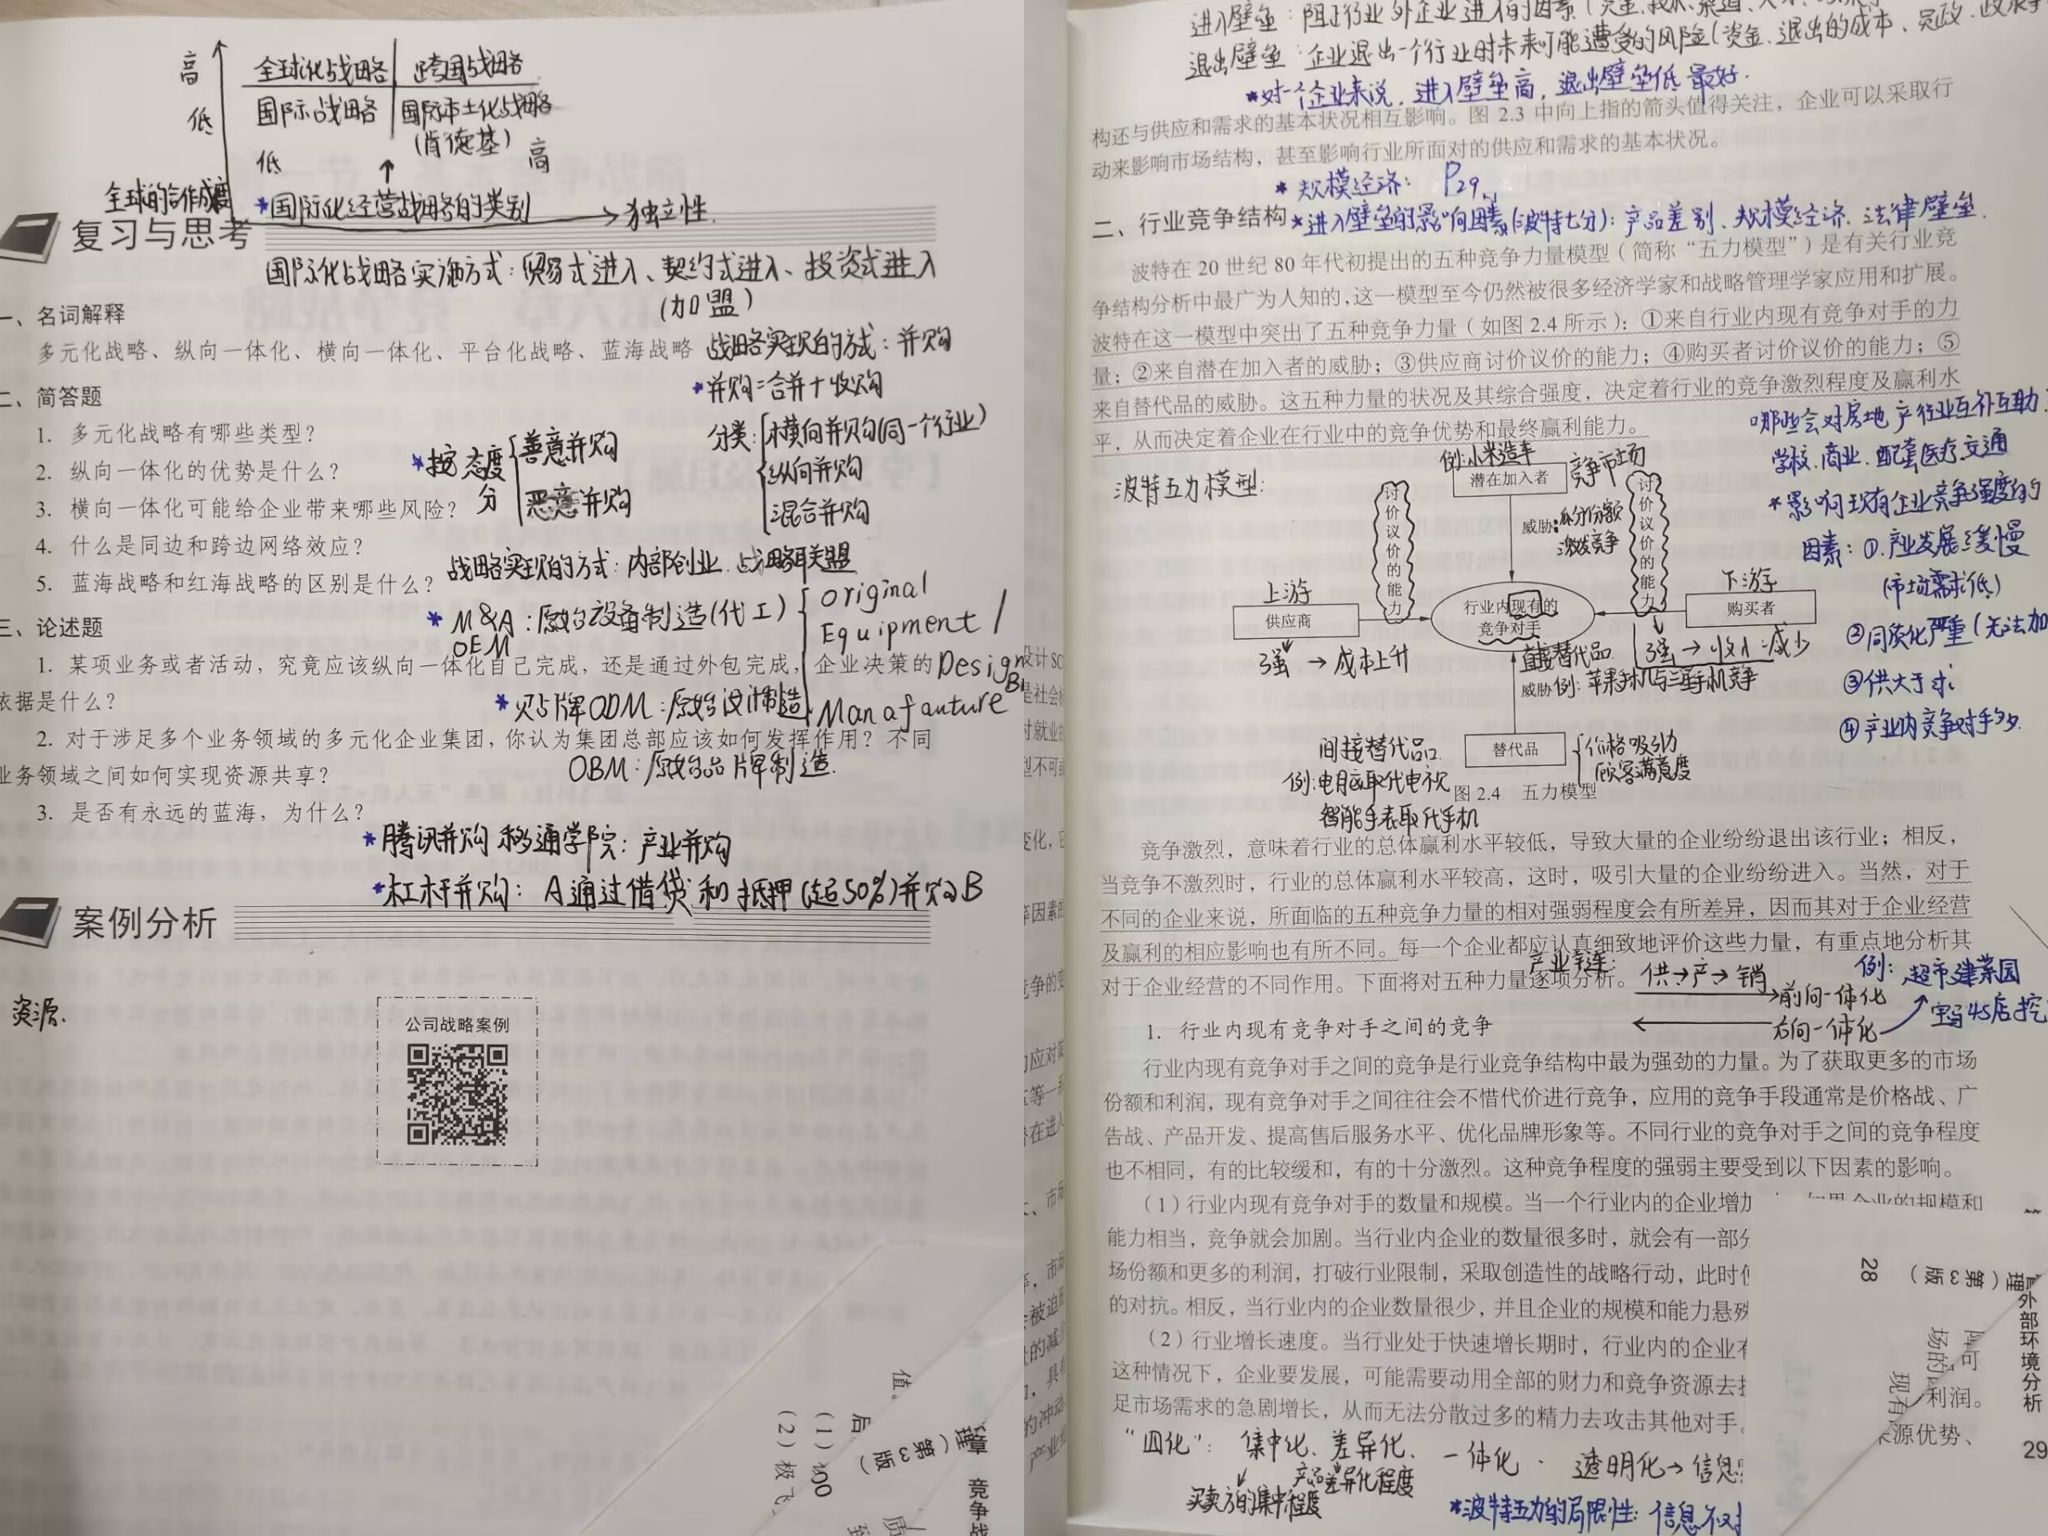 高
全球化战略 跨国战略
低
国际战略 国际本土化战略
(肯德基)
低 高
全球的合作成度
*国际化经营战略的类别 → 独立性.
复习与思考
国际化战略实施方式：贸易式进入、契约式进入、投资式进入
(加盟)
一、名词解释
多元化战略、纵向一体化、横向一体化、平台化战略、蓝海战略
战略实现的方式：并购
*并购=合并+收购
二、简答题
1. 多元化战略有哪些类型？
2. 纵向一体化的优势是什么？
3. 横向一体化可能给企业带来哪些风险？
4. 什么是同边和跨边网络效应？
5. 蓝海战略和红海战略的区别是什么？
*按态度分 善意并购
恶意并购
分类：横向并购(同一个行业)
纵向并购
混合并购
战略实现的方式：内部创业、战略联盟
*M&A：原始设备制造(代工)
OEM
original
Equipment /
Design
Manafauture
三、论述题
1. 某项业务或者活动，究竟应该纵向一体化自己完成，还是通过外包完成，企业决策的
依据是什么？
*贴牌ODM：原始设计制造
2. 对于涉足多个业务领域的多元化企业集团，你认为集团总部应该如何发挥作用？不同
业务领域之间如何实现资源共享？
OBM：原始品牌制造.
3. 是否有永远的蓝海，为什么？
*腾讯并购移通学院：产业并购
*杠杆并购：A通过借贷和抵押(超50%)并购B
案例分析
资源.
公司战略案例
值。
后
(1)
(2) 极飞
理（第3版）
100
竞争战
进入壁垒：阻止行业外企业进入的因素
退出壁垒：企业退出一个行业时未来可能遭受的风险(资金、退出的成本、
*对一个企业来说，进入壁垒高，退出壁垒低最好.
构还与供应和需求的基本状况相互影响。图 2.3 中向上指的箭头值得关注，企业可以采取行
动来影响市场结构，甚至影响行业所面对的供应和需求的基本状况。
*规模经济：P29
二、行业竞争结构
*进入壁垒的影响因素(波特七分)：产品差别、规模经济、法律壁垒.
波特在 20 世纪 80 年代初提出的五种竞争力量模型（简称“五力模型”）是有关行业竞
争结构分析中最广为人知的，这一模型至今仍然被很多经济学家和战略管理学家应用和扩展。
波特在这一模型中突出了五种竞争力量（如图 2.4 所示）：①来自行业内现有竞争对手的力
量；②来自潜在加入者的威胁；③供应商讨价议价的能力；④购买者讨价议价的能力；⑤
来自替代品的威胁。这五种力量的状况及其综合强度，决定着行业的竞争激烈程度及赢利水
平，从而决定着企业在行业中的竞争优势和最终赢利能力。
哪些会对房地产行业互补互助
学校、商业、配套医疗、交通
*影响现有企业竞争强度的
因素：①.产业发展缓慢
(市场需求低)
②同质化严重(无法加
③供大于求
④产业内竞争对手多.
波特五力模型：
例：小米造车
潜在加入者 竞争市场
威胁：瓜分份额
激发竞争
讨价议价的能力
讨价议价的能力
上游
供应商
强 → 成本上升
行业内现有的
竞争对手
下游
购买者
强 → 收入减少
直接替代品
威胁 例：苹果手机与三星手机竞争
间接替代品
例：电脑取代电视
智能手表取代手机
替代品 价格吸引力
顾客满意度
图 2.4 五力模型
竞争激烈，意味着行业的总体赢利水平较低，导致大量的企业纷纷退出该行业；相反，
当竞争不激烈时，行业的总体赢利水平较高，这时，吸引大量的企业纷纷进入。当然，对于
不同的企业来说，所面临的五种竞争力量的相对强弱程度会有所差异，因而其对于企业经营
及赢利的相应影响也有所不同。每一个企业都应认真细致地评价这些力量，有重点地分析其
对于企业经营的不同作用。下面将对五种力量逐项分析。
产业竞连：
供→产→销
前向一体化
后向一体化
例：超市建菜园
宝马4S店挖
1. 行业内现有竞争对手之间的竞争
行业内现有竞争对手之间的竞争是行业竞争结构中最为强劲的力量。为了获取更多的市场
份额和利润，现有竞争对手之间往往会不惜代价进行竞争，应用的竞争手段通常是价格战、广
告战、产品开发、提高售后服务水平、优化品牌形象等。不同行业的竞争对手之间的竞争程度
也不相同，有的比较缓和，有的十分激烈。这种竞争程度的强弱主要受到以下因素的影响。
（1）行业内现有竞争对手的数量和规模。当一个行业内的企业增加
能力相当，竞争就会加剧。当行业内企业的数量很多时，就会有一部分
场份额和更多的利润，打破行业限制，采取创造性的战略行动，此时
的对抗。相反，当行业内的企业数量很少，并且企业的规模和能力悬殊
（2）行业增长速度。当行业处于快速增长期时，行业内的企业有
这种情况下，企业要发展，可能需要动用全部的财力和竞争资源去
足市场需求的急剧增长，从而无法分散过多的精力去攻击其他对手。
“四化”：集中化、差异化、一体化、透明化→信息
买卖方的集中程度
产品差异化程度
*波特五力的局限性：信息不对
28
理（第3版）
外部环境分析
利润。
源优势、
29